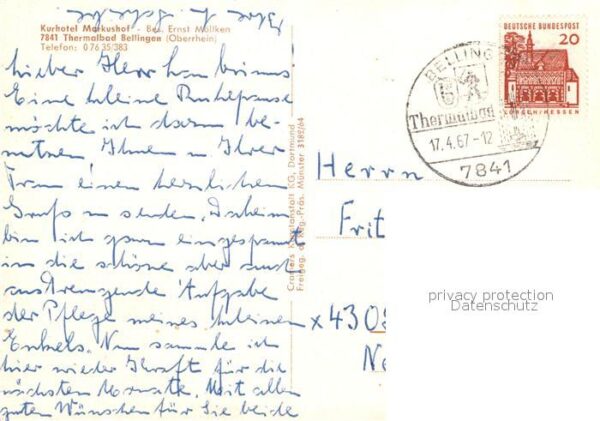 Kurhotel Markushof - Bes. Ernst Möliken
7841 Thermalbad Bellingen (Oberrhein)
Telefon: 0 76 35/383
lieber Herr
Eine kleine Ruhepause
möchte ich dazu be-
nutzen, Ihnen u. Ihrer
Frau einen herzlichen
Gruß zu senden. Daheim
bin ich ganz eingespannt
in die schöne aber auch
anstrengende Aufgabe
der Pflege meines kleinen
Enkels. Nun sammle ich
hier wieder Kraft für die
nächsten Monate. Mit allen
guten Wünschen für Sie beide
Ihre
Cramers Kunstanstalt KG, Dortmund
Freigeg. d. Reg.-Präs. Münster 3182/64
DEUTSCHE BUNDESPOST
20
LORSCH/HESSEN
BELLINGEN
Thermalbad
17.4.67-12
7841
Herrn
Frit
x 430
Ne
privacy protection
Datenschutz